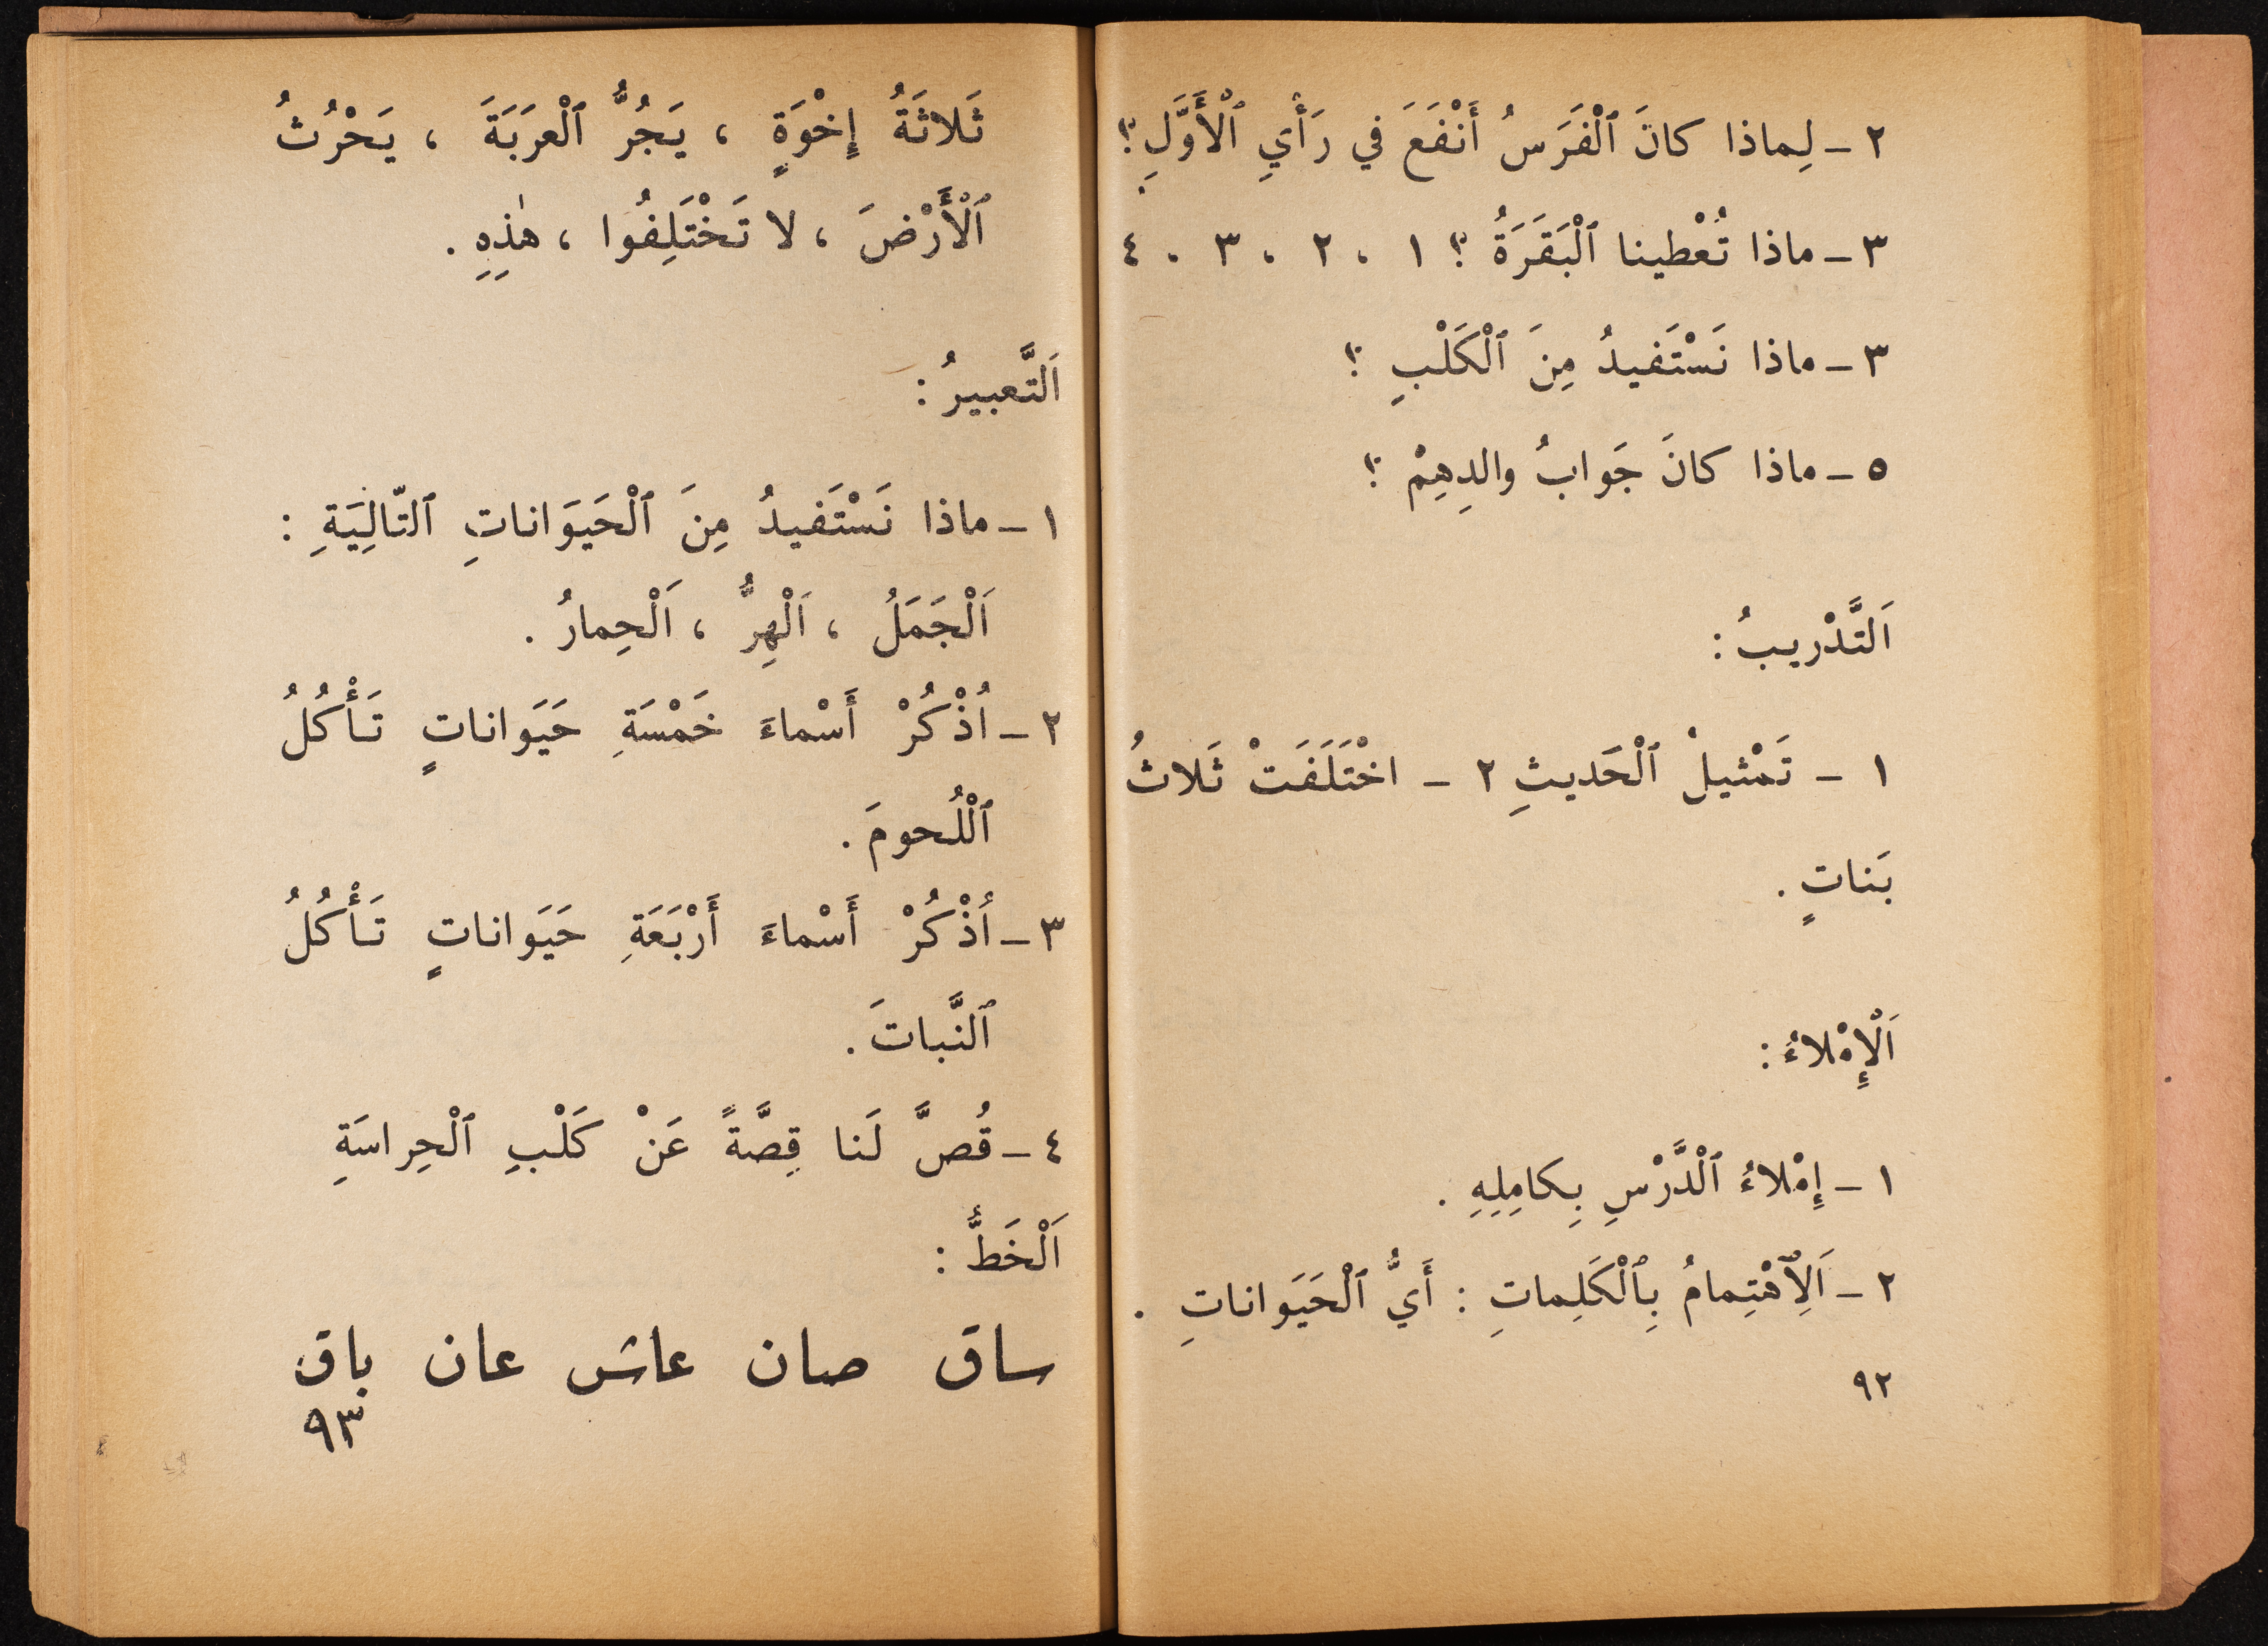 ٢ ـ لِماذا كانَ ٱلْفَرَسُ أَنْفَعَ في رَأْيِ ٱلْأَوَّلِ؟
٣ ـ ماذا تُعْطينا ٱلْبَقَرَةُ ؟ ١ ، ٢ ، ٣ ، ٤
٣ ـ ماذا نَسْتَفيدُ مِنَ ٱلْكَلْبِ ؟
٥ ـ ماذا كانَ جَوابُ والدِهِمْ ؟
اَلتَّدْريبُ :
١ ـ تَمْثيلْ ٱلْحَديثِ ٢ ـ اخْتَلَفَتْ ثَلاثُ
بَناتٍ .
اَلْإِمْلاءُ :
١ ـ إِمْلاءُ ٱلْدَّرْسِ بِكامِلِهِ .
٢ ـ اَلِٱهْتِمامُ بِٱلْكَلِماتِ : أَيُّ ٱلْحَيَوانات
ِ .
٩٢
ثَلاثَةُ إِخْوَةٍ ، يَجُرُّ ٱلْعرَبَةَ ، يَحْرُثُ
اَلْأَرْضَ ، لا تَخْتَلِفُوا ، هٰذِهِ .
اَلتَّعبيرُ :
١ ـ ماذا نَسْتَفيدُ مِنَ ٱلْحَيَوَاناتِ ٱلتّالِيَةِ :
اَلْجَمَلُ ، اَلْهِرُّ ، اَلْحِمارُ .
٢ ـ اُذْكُرْ أَسْماءَ خَمْسَةِ حَيَواناتٍ تَأْكُلُ
ٱلْلُحومَ .
٣ ـ اُذْكُرْ أَسْماءَ أَرْبَعَةِ حَيَواناتٍ تَأْكُلُ
ٱلنَّباتَ .
٤ ـ قُصَّ لَنا قِصَّةً عَنْ كَلْبِ ٱلْحِراسَةِ
اَلْخَطُّ :
ساق صان عاش عان باق
٩٣